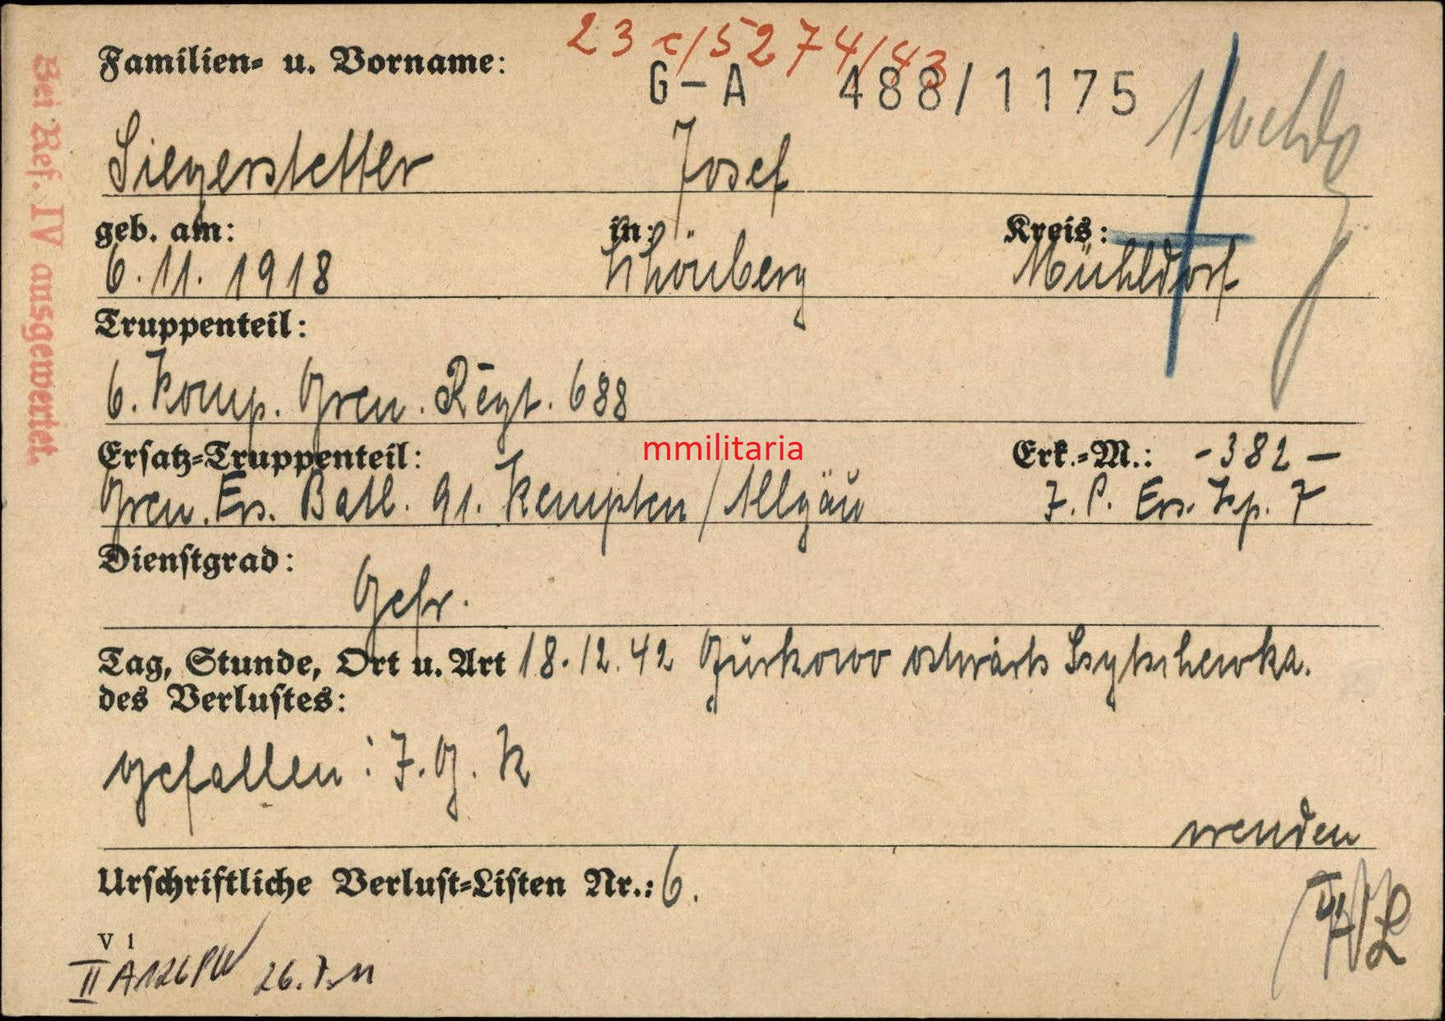 23 c/5274/43
Familien- u. Vorname:
G-A 488/1175
Siegerstetter Josef
geb. am: in: Kreis:
6.11.1918 Schönberg Mühldorf
Truppenteil:
6. Komp. Gren. Regt. 688
mmilitaria
Ersatz-Truppenteil: Erk.-M.: -382-
Gren. Ers. Batl. 91. Kempten/Allgäu J. P. Ers. Kp. 7
Dienstgrad:
Gefr.
Tag, Stunde, Ort u. Art 18.12.42 Gurkowo ostwärts Ssytschewka.
des Verlustes:
gefallen: J. G. K
wenden
Urschriftliche Verlust-Listen Nr.: 6.
V 1
II A 126
Bei Ref. IV ausgewertet.